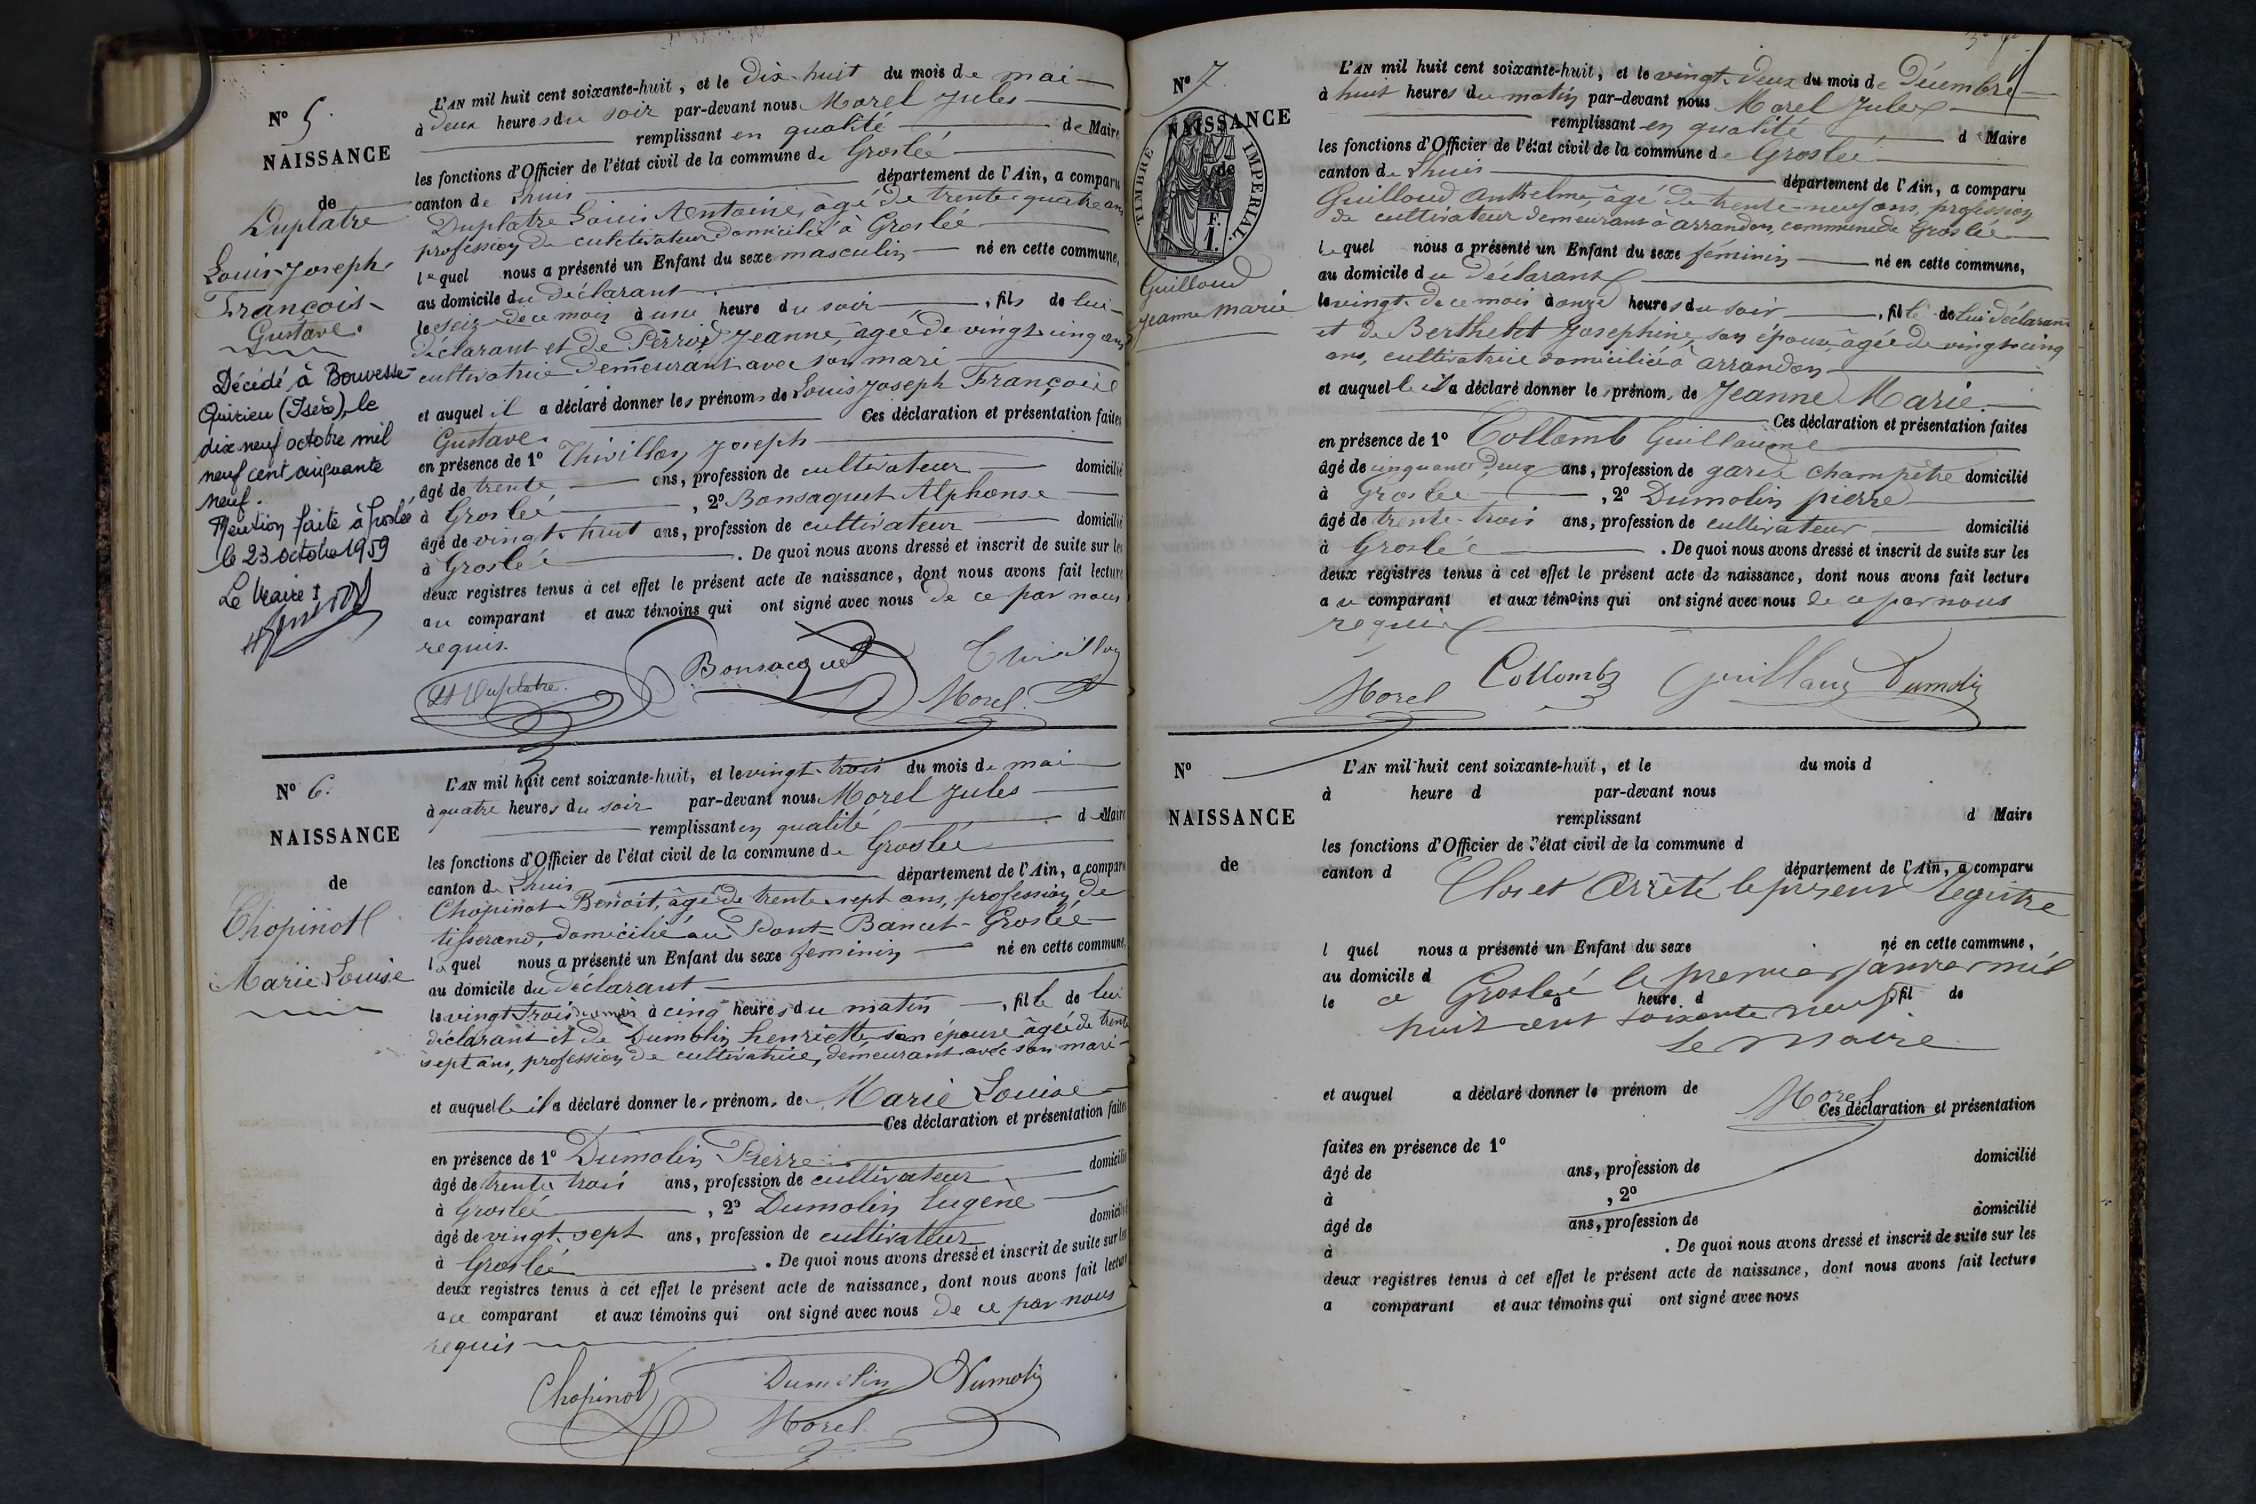 N° 5.
NAISSANCE
de
Duplatre
Louis Joseph
François
Gustave.
Décédé à Bouvesse-
Quirieu (Isère), le
dix neuf octobre mil
neuf cent cinquante
neuf.
Mention faite à Groslée
le 23 octobre 1959
Le Maire :
L'AN mil huit cent soixante-huit, et le dix-huit du mois de mai
à deux heures du soir par-devant nous Morel Jules
remplissant en qualité de Maire
les fonctions d'Officier de l'état civil de la commune de Groslée
canton de Lhuis département de l'Ain, a comparu
Duplatre Louis Antoine, âgé de trente quatre ans
profession de cultivateur domicilié à Groslée
lequel nous a présenté un Enfant du sexe masculin né en cette commune,
au domicile du déclarant
le seize de ce mois à une heure du soir, fils de lui
déclarant et de Jeanne, âgée de vingt cinq ans
cultivatrice demeurant avec son mari
et auquel il a déclaré donner les prénoms de Louis Joseph François
Gustave. Ces déclaration et présentation faites
en présence de 1° Thivillon Joseph
âgé de trente ans, profession de cultivateur domicilié
à Groslée, 2° Bonsaquet Alphonse
âgé de vingt-huit ans, profession de cultivateur domicilié
à Groslée. De quoi nous avons dressé et inscrit de suite sur les
deux registres tenus à cet effet le présent acte de naissance, dont nous avons fait lecture
au comparant et aux témoins qui ont signé avec nous de ce par nous
requis.
Duplatre Bonsacquet Thivillon
Morel
N° 6.
NAISSANCE
de
Chopinot
Marie Louise
L'AN mil huit cent soixante-huit, et le vingt-trois du mois de mai
à quatre heures du soir par-devant nous Morel Jules
remplissant en qualité de Maire
les fonctions d'Officier de l'état civil de la commune de Groslée
canton de Lhuis département de l'Ain, a comparu
Chopinot Benoit, âgé de trente sept ans, profession de
tisserand, domicilié au Pont Bancet - Groslée
lequel nous a présenté un Enfant du sexe féminin né en cette commune,
au domicile du déclarant
le vingt trois du mois à cinq heures du matin, fille de lui
déclarant et de Dumolin henriette son épouse âgée de trente
sept ans, profession de cultivatrice, demeurant avec son mari
et auquelle il a déclaré donner les prénoms de Marie Louise
Ces déclaration et présentation faites
en présence de 1° Dumolin Pierre
âgé de trente trois ans, profession de cultivateur domicilié
à Groslée, 2° Dumolin Eugène
âgé de vingt-sept ans, profession de cultivateur domicilié
à Groslée. De quoi nous avons dressé et inscrit de suite sur les
deux registres tenus à cet effet le présent acte de naissance, dont nous avons fait lecture
au comparant et aux témoins qui ont signé avec nous de ce par nous
requis
Chopinot Dumolin Dumolin
Morel
N° 7
NAISSANCE
de
TIMBRE IMPERIAL
F.
1.
Guilloud
Jeanne Marie
L'AN mil huit cent soixante-huit, et le vingt-deux du mois de Décembre
à huit heures du matin par-devant nous Morel Jules
remplissant en qualité d Maire
les fonctions d'Officier de l'état civil de la commune de Groslée
canton de Lhuis département de l'Ain, a comparu
Guilloud Anthelme, âgé de trente-neuf ans, profession
de cultivateur demeurant à arrandon, commune de Groslée
lequel nous a présenté un Enfant du sexe féminin né en cette commune,
au domicile du déclarant
le vingt de ce mois à onze heures du soir, fille de lui déclarant
et de Berthelet Josephine, son épouse, âgée de vingt-cinq
ans, cultivatrice domiciliée à arrandon
et auquelle il a déclaré donner les prénoms de Jeanne Marie.
Ces déclaration et présentation faites
en présence de 1° Collomb Guillaume
âgé de cinquante deux ans, profession de garde champêtre domicilié
à Groslée, 2° Dumolin pierre
âgé de trente-trois ans, profession de cultivateur domicilié
à Groslée. De quoi nous avons dressé et inscrit de suite sur les
deux registres tenus à cet effet le présent acte de naissance, dont nous avons fait lecture
au comparant et aux témoins qui ont signé avec nous de ce par nous
requis
Morel Collomb Guillaud Dumolin
N°
NAISSANCE
de
L'AN mil huit cent soixante-huit, et le du mois d
à heure d par-devant nous
remplissant d Maire
les fonctions d'Officier de l'état civil de la commune d
canton d département de l'Ain, a comparu
Clos et Arrêté le présent Registre
l quel nous a présenté un Enfant du sexe né en cette commune,
au domicile d
à Groslée le premier janvier mil
le à heure d fil de
huit cent soixante neuf
Le Maire
et auquel a déclaré donner le prénom de
Morel
Ces déclaration et présentation
faites en présence de 1°
âgé de ans, profession de domicilié
à , 2°
âgé de ans, profession de domicilié
à . De quoi nous avons dressé et inscrit de suite sur les
deux registres tenus à cet effet le présent acte de naissance, dont nous avons fait lecture
a comparant et aux témoins qui ont signé avec nous